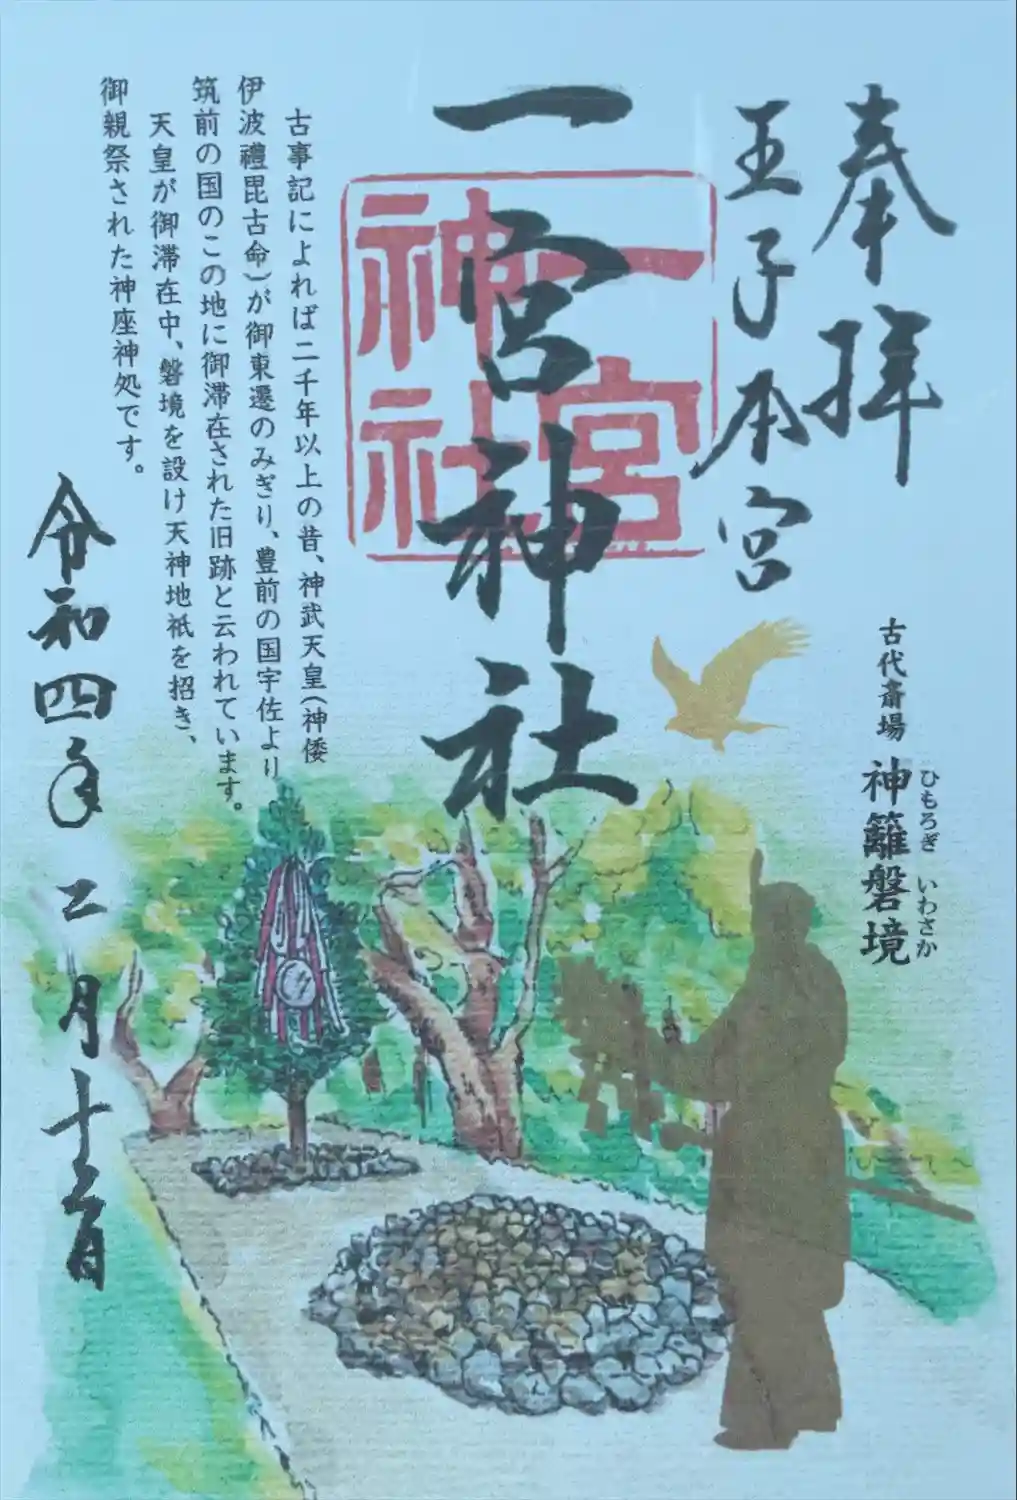 奉拝
王子本宮
一宮神社
一宮
神社
古代斎場
神籬磐境
ひもろぎ いわさか
古事記によれば二千年以上の昔、神武天皇(神倭
伊波禮毘古命)が御東遷のみぎり、豊前の国宇佐より
筑前の国のこの地に御滞在された旧跡と云われています。
天皇が御滞在中、磐境を設け天神地祇を招き、
御親祭された神座神処です。
令和四年二月十二日